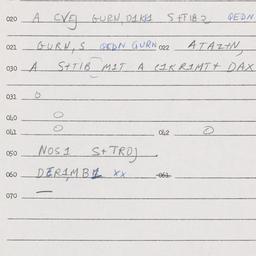 020 A CVEJ GURN, D1KK1 S+TIB2 GEDN
021 GURN, S GEDN GURN 022 ATAZ+N,
030 A S+TIB M1T A C1KR1MT+ DAX
031 0
040 0
041 0 042 0
050 NOS1 S+TROJ
060 DER1MB1 xx 061
070 —